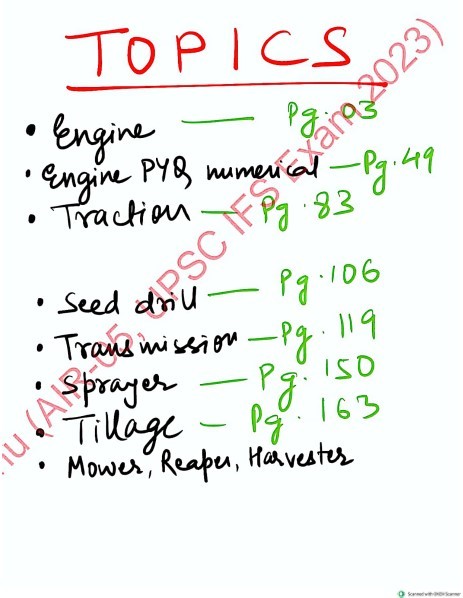 TOPICS
• Engine — Pg. 03
• Engine PYQ numerical — Pg. 49
• Traction — Pg. 83
• Seed drill — Pg. 106
• Transmission — Pg. 119
• Sprayer — Pg. 150
• Tillage — Pg. 163
• Mower, Reaper, Harvester
(AIR-05, UPSC IFS Exam 2023)
Scanned with OKEN Scanner